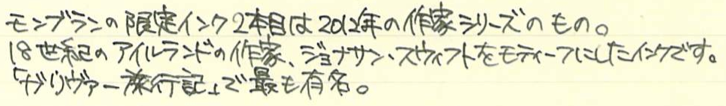 モンブランの限定インク2本目は2012年の作家シリーズのもの。
18世紀のアイルランドの作家、ジョナサン・スウィフトをモティーフにしたインクです。
「ガリヴァー旅行記」で最も有名。